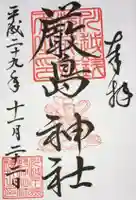 奉拝
厳島神社
平成二十九年十一月二十二日